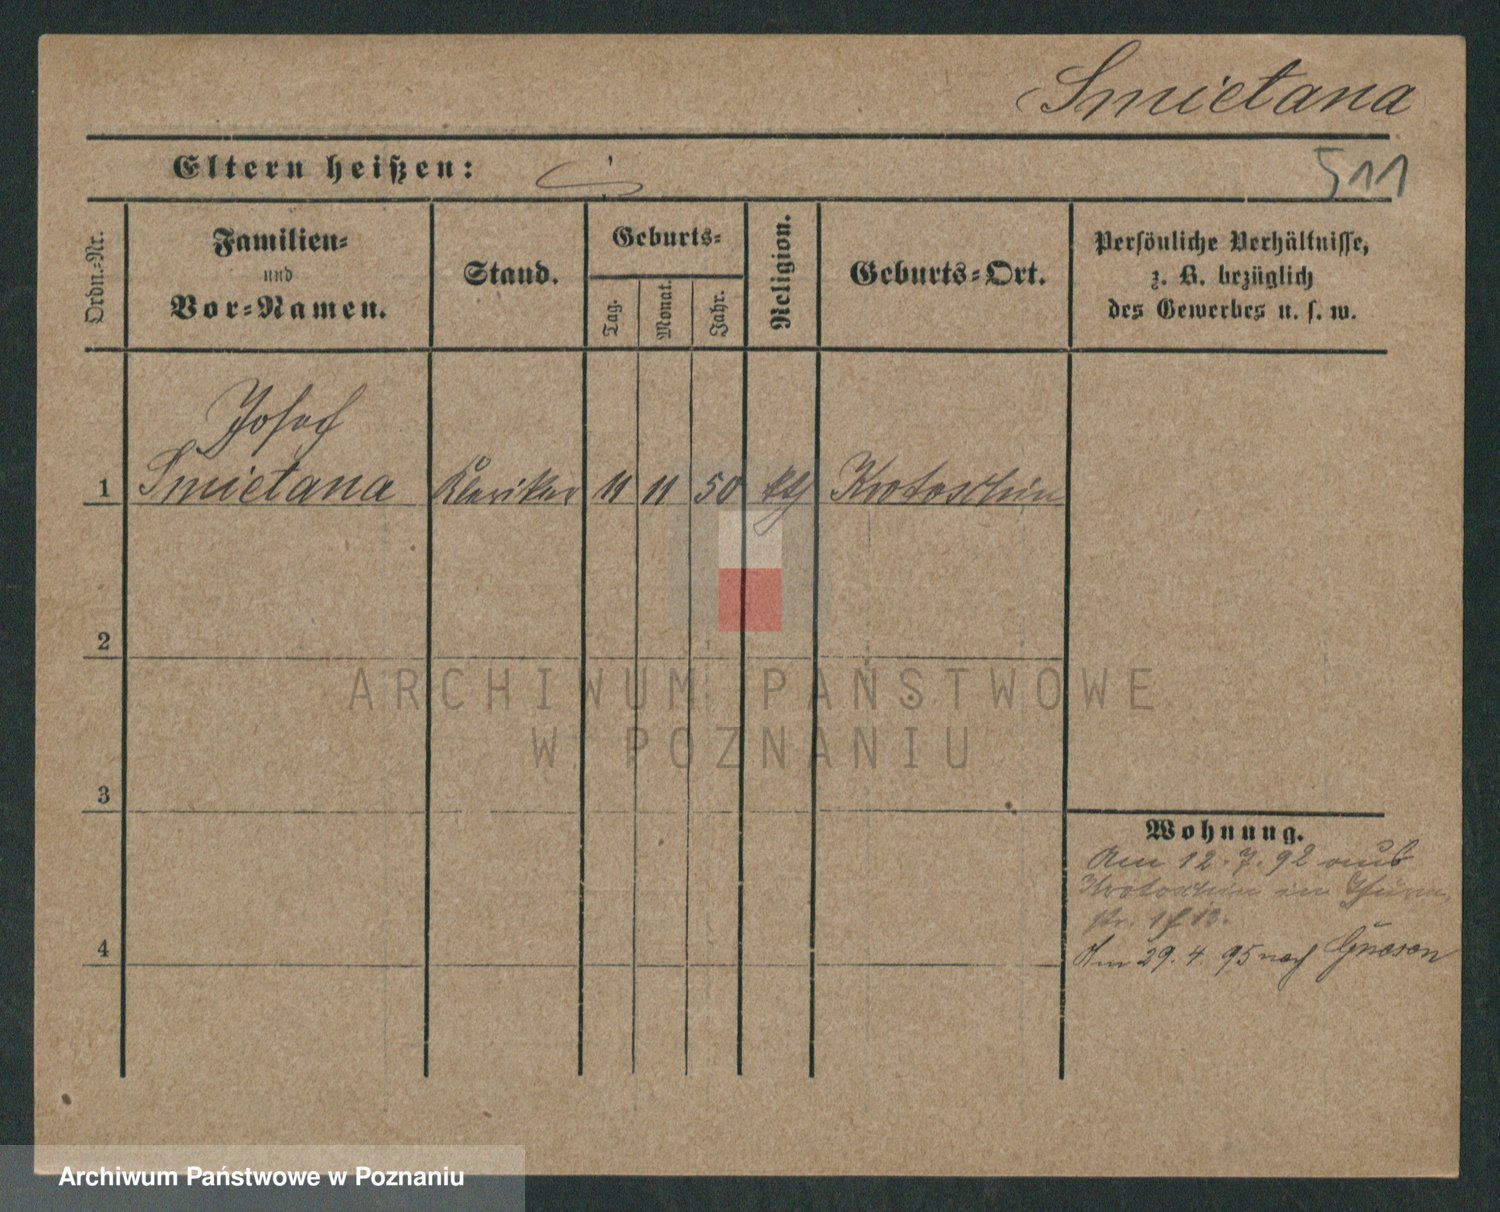 Smietana
Eltern heißen:
511
Ordn.-Nr.
Familien-
und
Vor-Namen.
Stand.
Geburts-
Tag.
Monat.
Jahr.
Religion.
Geburts-Ort.
Persönliche Verhältnisse,
z. B. bezüglich
des Gewerbes u. s. w.
Josef
1 Smietana Kleriker 11 11 50 Krotoschin
2
3
4
Wohnung.
Am 12.7.92 aus
Krotoschin in Thurm
str. 13.
Am 29.4.95 nach Gnesen
ARCHIWUM PAŃSTWOWE
W POZNANIU
Archiwum Państwowe w Poznaniu